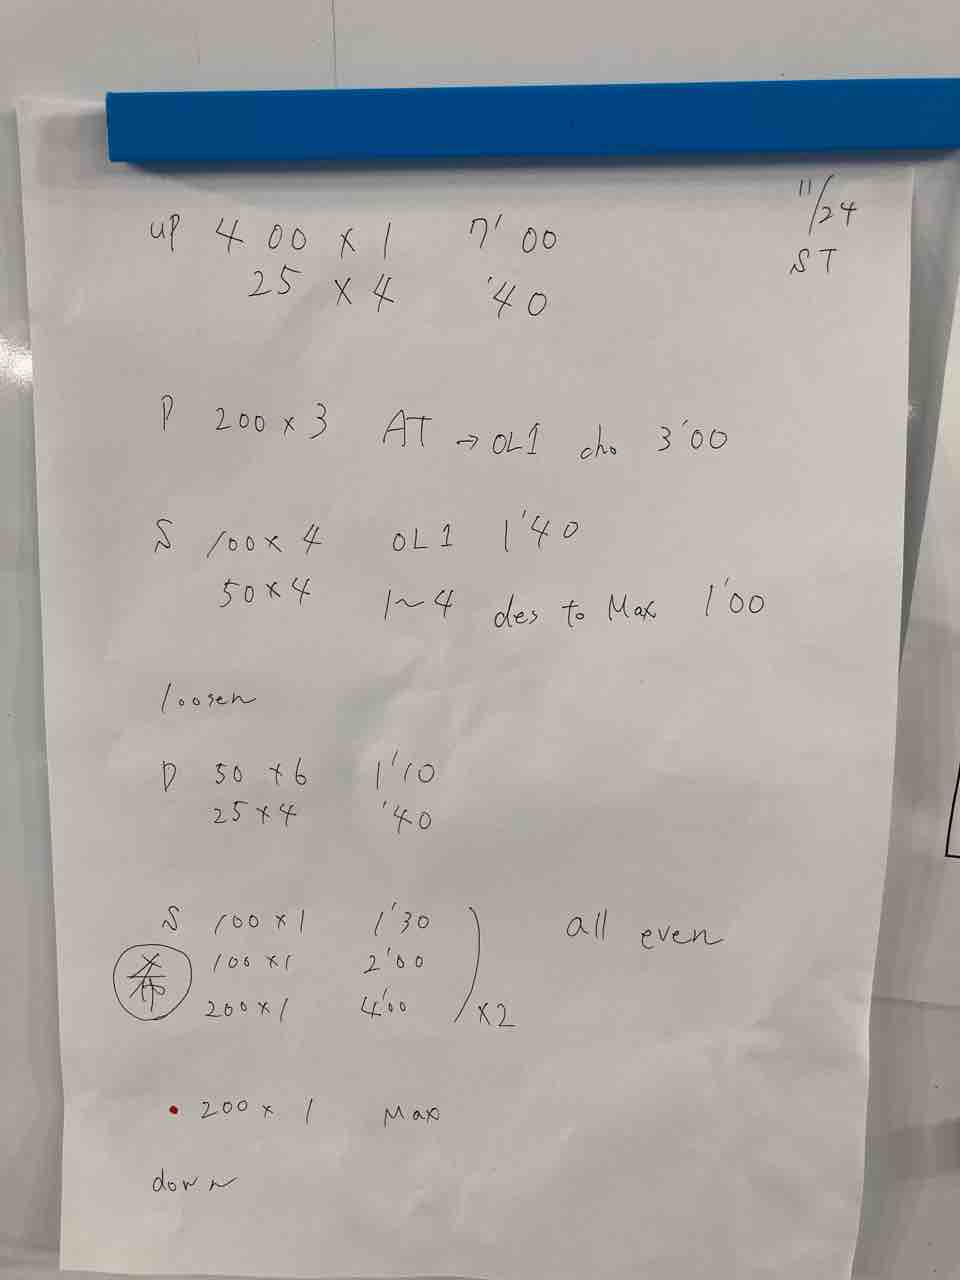 11/24
ST
up 400 × 1 7'00
25 × 4 '40
P 200 × 3 AT → OL1 cho 3'00
S 100 × 4 OL1 1'40
50 × 4 1~4 des to Max 1'00
loosen
D 50 × 6 1'10
25 × 4 '40
S 100 × 1 1'30
100 × 1 2'00 all even
希 200 × 1 4'00 ×2
• 200 × 1 Max
down